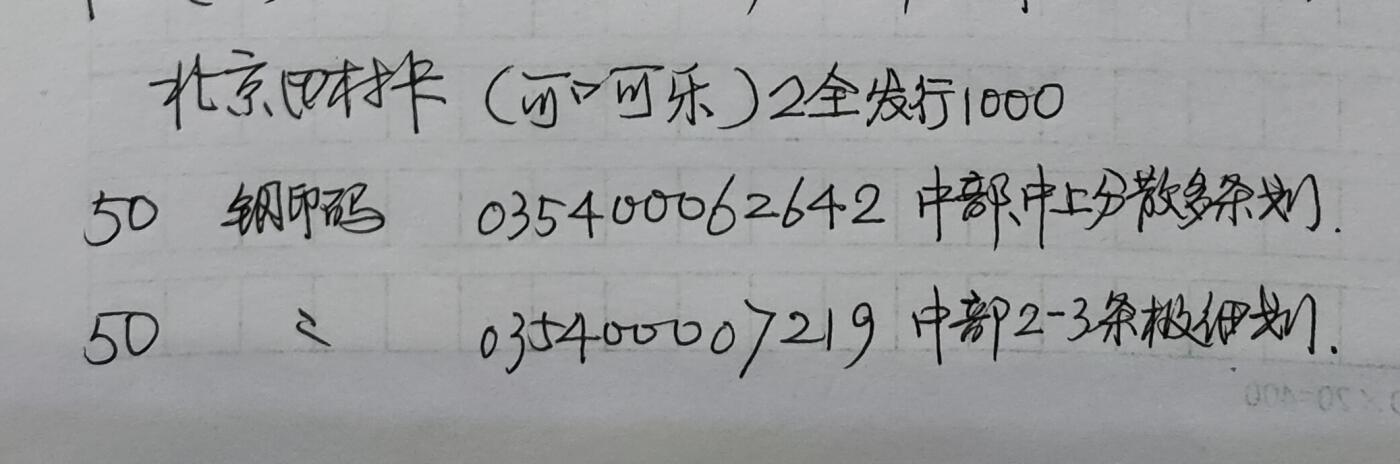 北京田村卡（可口可乐）2全发行1000
50 钢印码 035400062642 中部、中上分散多条划.
50 〃 035400007219 中部2-3条极细划.